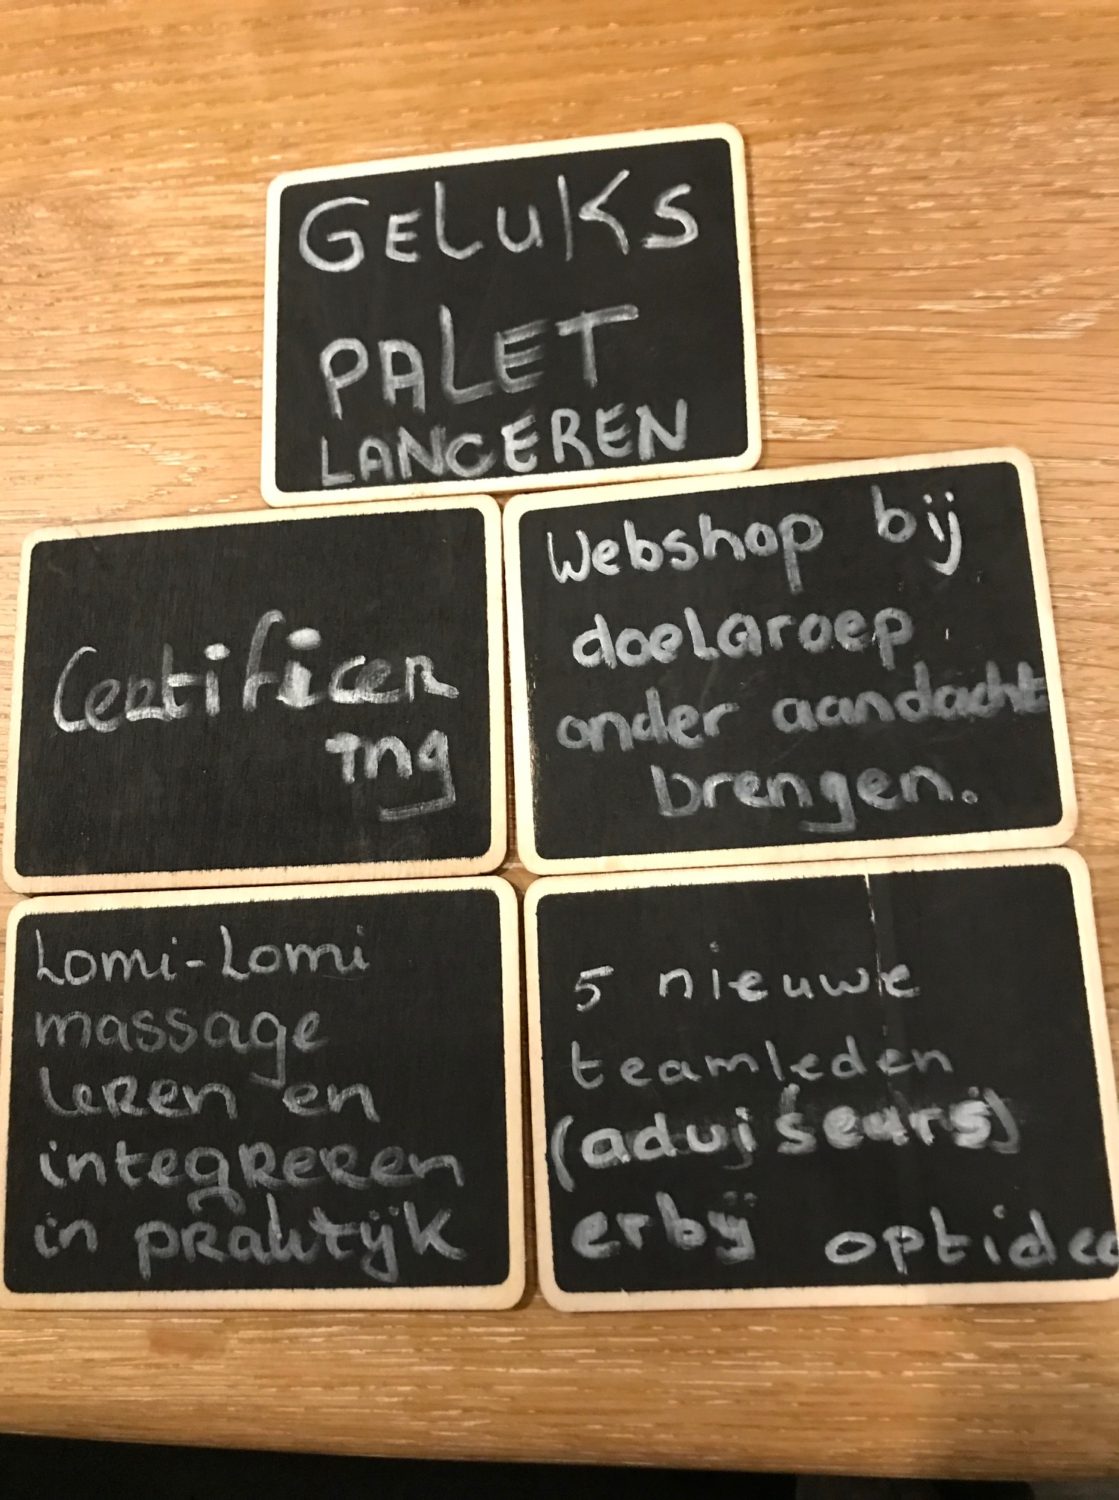 GELUKS
PALET
LANCEREN
Certificer
ing
Webshop bij
doelgroep
onder aandacht
brengen.
Lomi-Lomi
massage
leren en
integreren
in praktijk
5 nieuwe
teamleden
(adviseurs)
erbij optidee